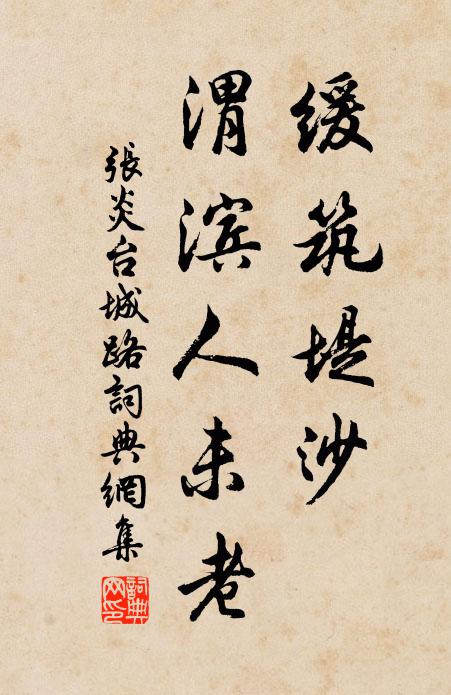 缓筑堤沙
渭滨人未老
張炎台城路詞典網集
詞典網印